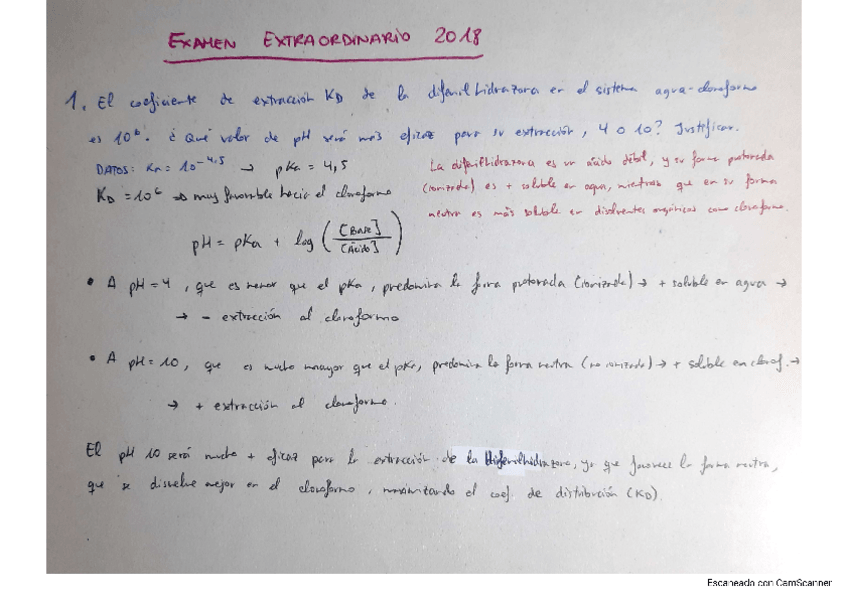 EXAMEN EXTRAORDINARIO 2018
1. El coeficiente de extracción KD de la difenilhidrazona en el sistema agua-cloroformo
es 10⁶. ¿Qué valor de pH será más eficaz para su extracción, 4 o 10? Justificar.
DATOS: Ka = 10⁻⁴,⁵ → pKa = 4,5
KD = 10⁶ ⇒ muy favorable hacia el cloroformo
La difenilhidrazona es un ácido débil, y su forma protonada
(ionizada) es + soluble en agua, mientras que en su forma
neutra es más soluble en disolventes orgánicos como cloroformo.
pH = pKa + log ([Base]/[Ácido])
• A pH=4, que es menor que el pKa, predomina la forma protonada (ionizada) → + soluble en agua →
→ - extracción al cloroformo
• A pH=10, que es mucho mayor que el pKa, predomina la forma neutra (no ionizada) → + soble en clorof. →
→ + extracción al cloroformo.
El pH 10 será mucho + eficaz para la extracción de la difenilhidrazona, ya que favorece la forma neutra,
que se disuelve mejor en el cloroformo, maximizando el coef. de distribución (KD).
Escaneado con CamScanner